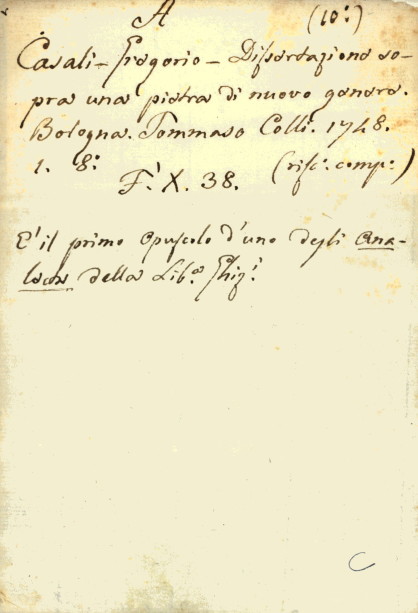 A (10:)
Casali - Gregorio - Dissertazione so-
pra una pietra di nuovo genere.
Bologna. Tommaso Colli. 1748.
1. 8: (risc: comp:)
F. X. 38.
E' il primo Opuscolo d'uno degli Ana-
della Lib.a
C